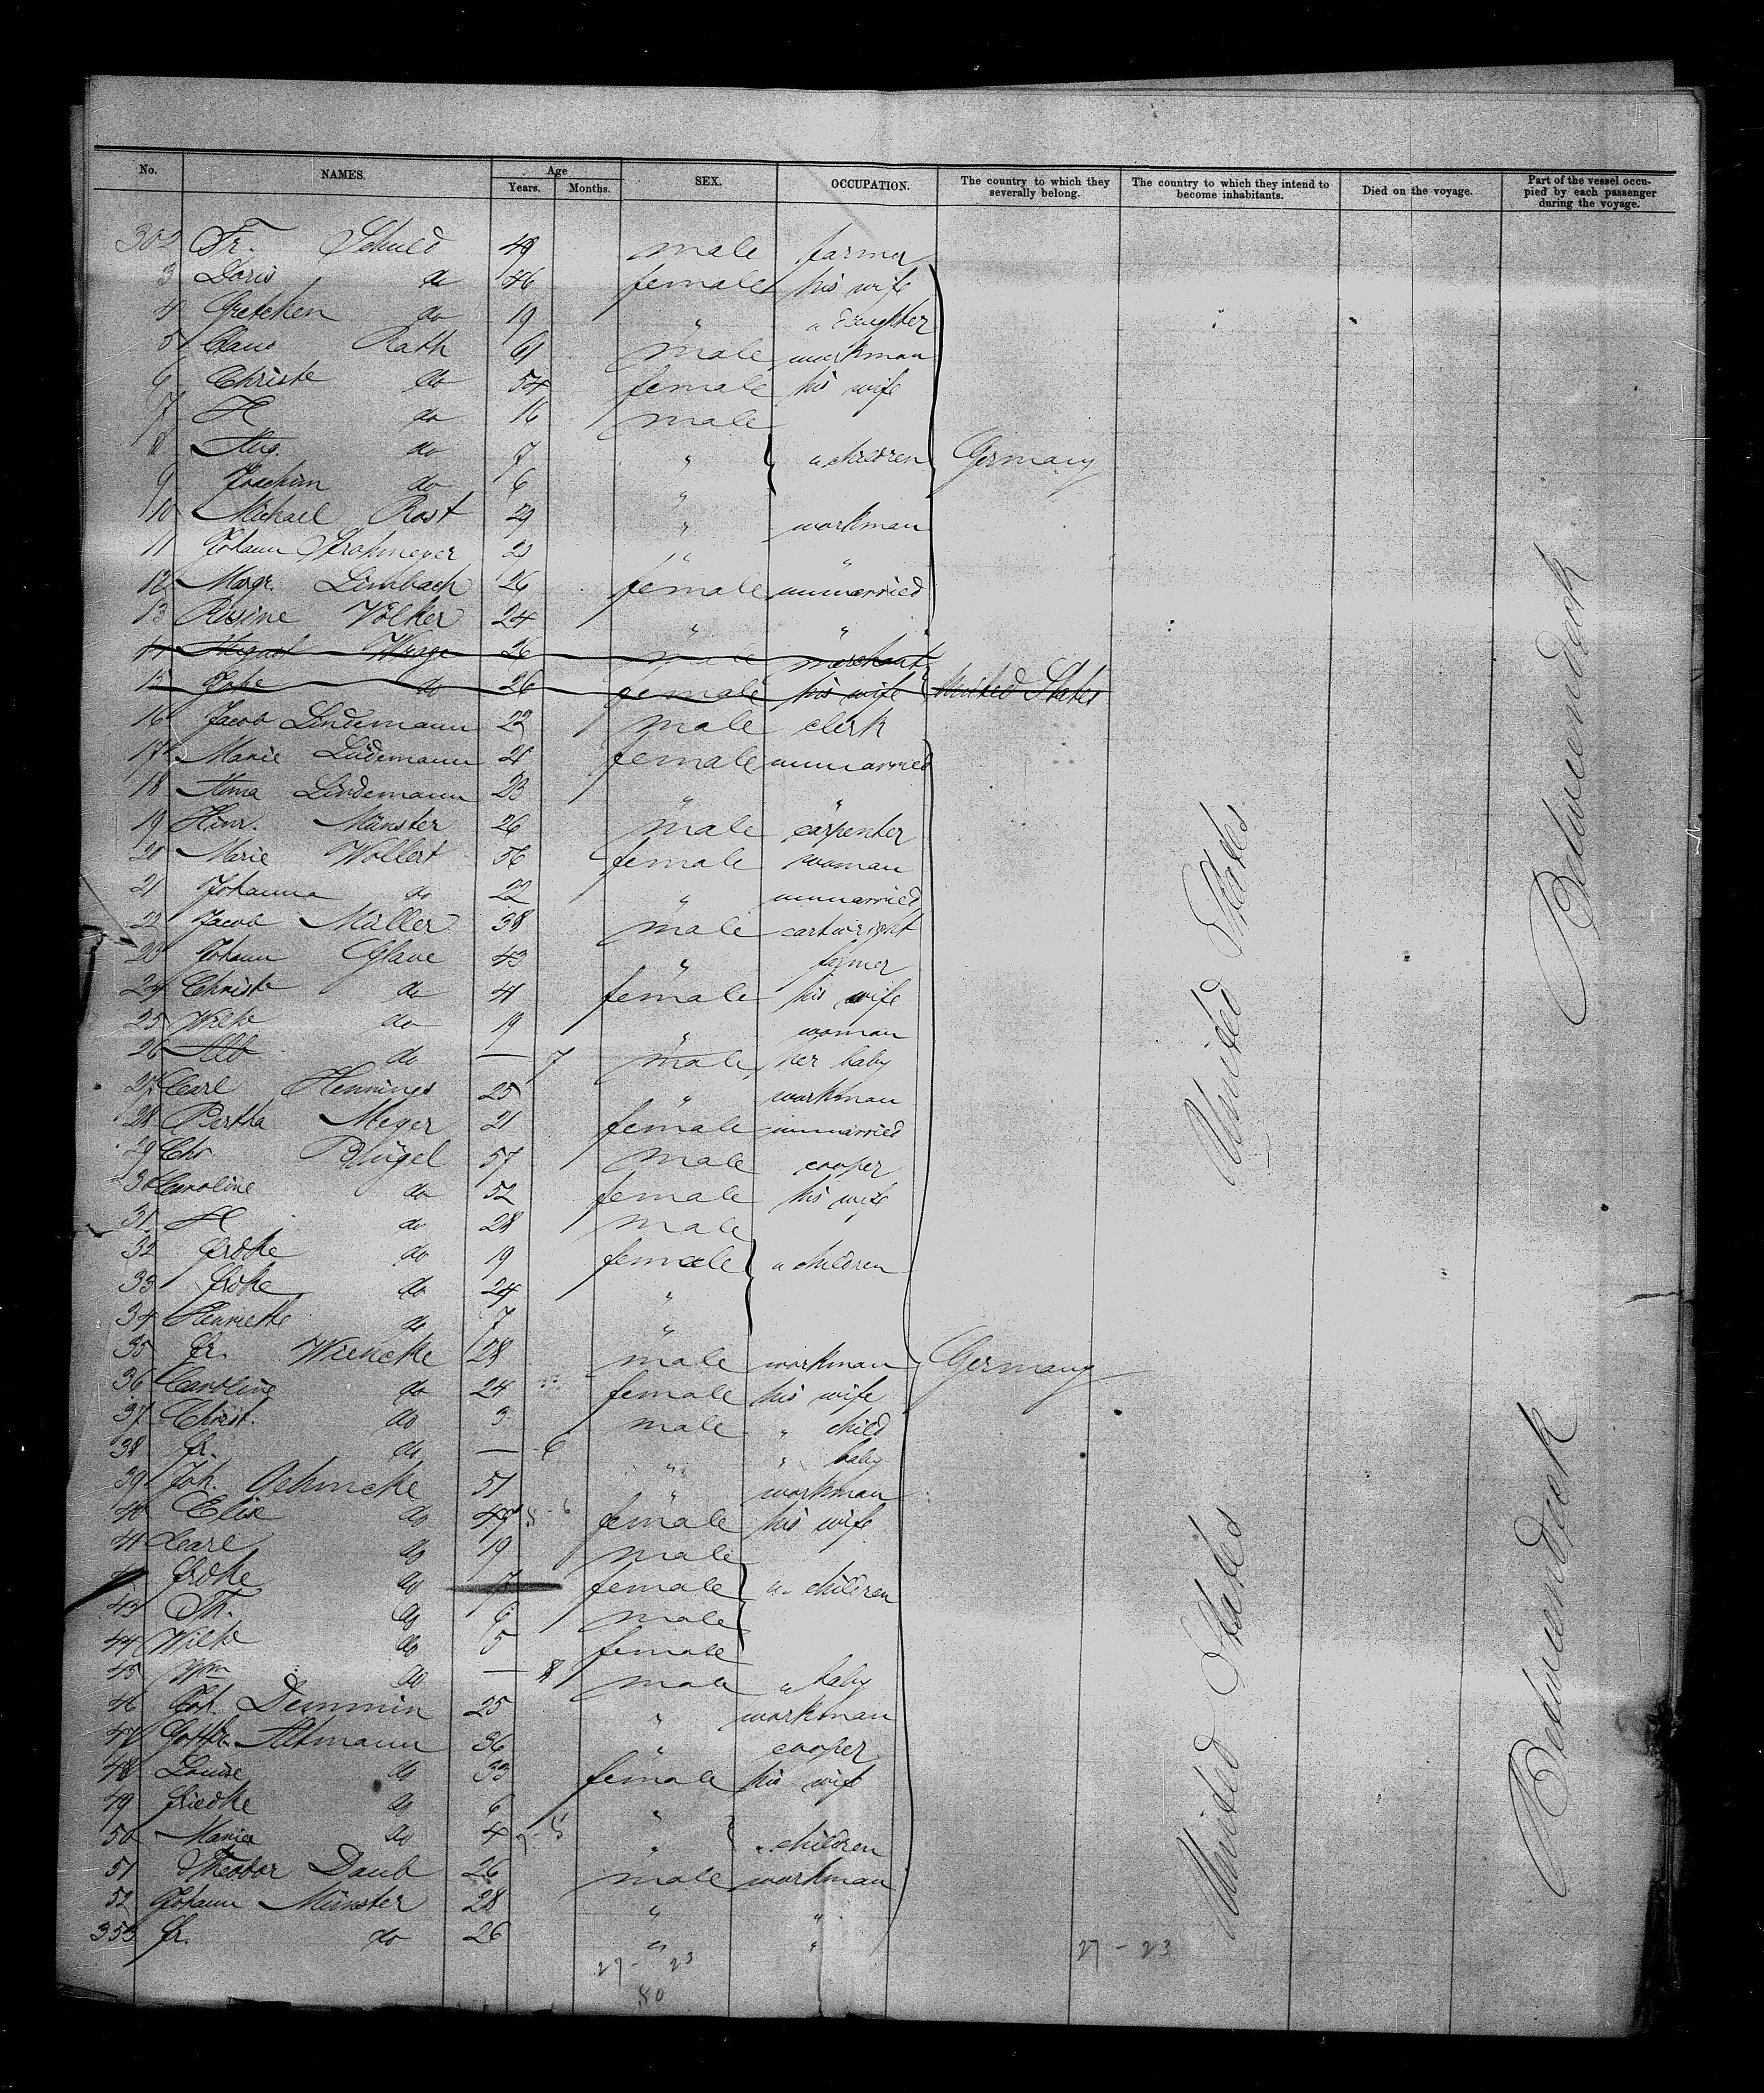 No. NAMES. Age Years. Months. SEX. OCCUPATION. The country to which they severally belong. The country to which they intend to become inhabitants. Died on the voyage. Part of the vessel occupied by each passenger during the voyage.
302 Fr. Schuld 49 male farmer
3 Doris do 46 female his wife
4 Gretchen do 19 " " daughter
5 Claus Rath 61 male workman
6 Christe do 54 female his wife
7 H do 16 male
8 Aug. do 7 " " children Germany
9 Joachim do 6 "
10 Michael Rost 29 " workman
11 Johann Strohmeyer " "
12 Margr. Limbach 26 female unmarried
13 Rosine Völker 24 " "
14 August 26 male merchant
15 do 26 female his wife United States
16 Jacob Lindemann 22 male clerk
17 Marie Lüdemann 21 female unmarried
18 Anna Lindemann 23 " "
19 Hinr. Münster 26 male carpenter
20 Marie Wollert 56 female woman
21 Johanna do 22 " unmarried
22 Jacob Müller 38 male cartwright
23 Johann Glaue 43 " farmer
24 Christe do 41 female his wife
25 Wilhe do 19 " woman
26 Alb do — 7 male her baby
27 Carl Hennings 25 " workman
28 Bertha Meyer 21 female unmarried
29 Chr Plügel 57 male cooper
30 Caroline do 52 female his wife
31 H do 28 male
32 Frdke do 19 female " children
33 do 24 "
34 Henriette do 7 "
35 Fr. Wiencke 28 male workman Germany
36 Caroline do 24 female his wife
37 Christ. do 3 male " child
38 Fr. do — 6 " " baby
39 Joh. Oehmcke 51 " workman
40 Elise do 47 female his wife
41 Carl do 19 male
Frdke do 7 female " children
43 Th. do 6 male
44 Wilhe do 5 female
45 Wm do — 8 male " baby
46 Joh. Demmin 25 " workman
47 Gottfr. Altmann 36 " cooper
48 Louise do 33 female his wife
49 Friedke do 6 "
50 Maria do 4 " " children
51 Theodor Daub 26 male workman
52 Johann Münster 28 " "
353 Fr. do 26 " "
27 - 23
27 - 23
50
United States
United States
Betweendeck
Betweendeck